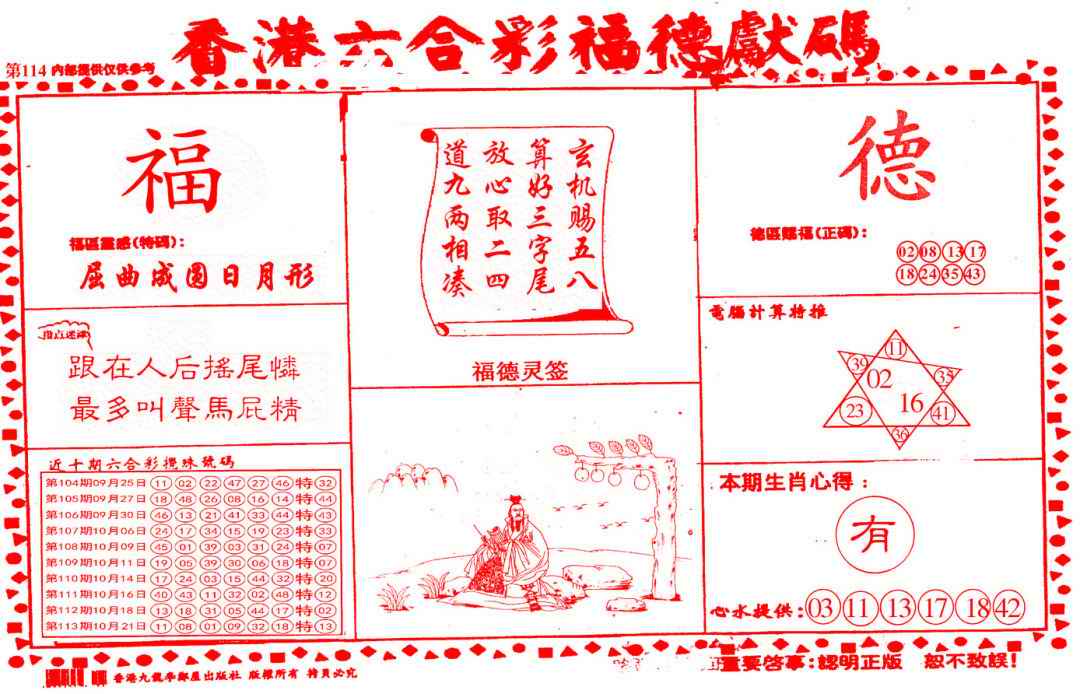 香港六合彩福德獻碼
第114 內部提供仅供参考
福
福區靈感(特碼):
屈曲成圆日月形
指点迷津
跟在人后搖尾憐
最多叫聲馬屁精
近十期六合彩攪珠號碼
第104期09月25日 11 02 22 47 27 46 特 32
第105期09月27日 18 48 26 08 16 14 特 44
第106期09月30日 46 13 21 41 33 44 特 43
第107期10月06日 24 17 34 15 19 23 特 33
第108期10月09日 45 01 39 03 31 24 特 07
第109期10月11日 19 05 39 30 06 18 特 07
第110期10月14日 17 24 03 15 44 32 特 20
第111期10月16日 40 43 11 32 02 48 特 12
第112期10月18日 13 18 31 05 44 17 特 02
第113期10月21日 11 08 01 09 32 18 特 13
玄机赐五八
算好三字尾
放心取二四
道九两相凑
福德灵签
德
德區賜福(正碼):
02 08 13 17
18 24 35 43
電腦計算特推
11
39 33
02
16
23 41
36
本期生肖心得:
有
心水提供: 03 11 13 17 18 42
香港九龍 出版社 版權所有 特員必究
重要啓事:認明正版 恕不致誤!